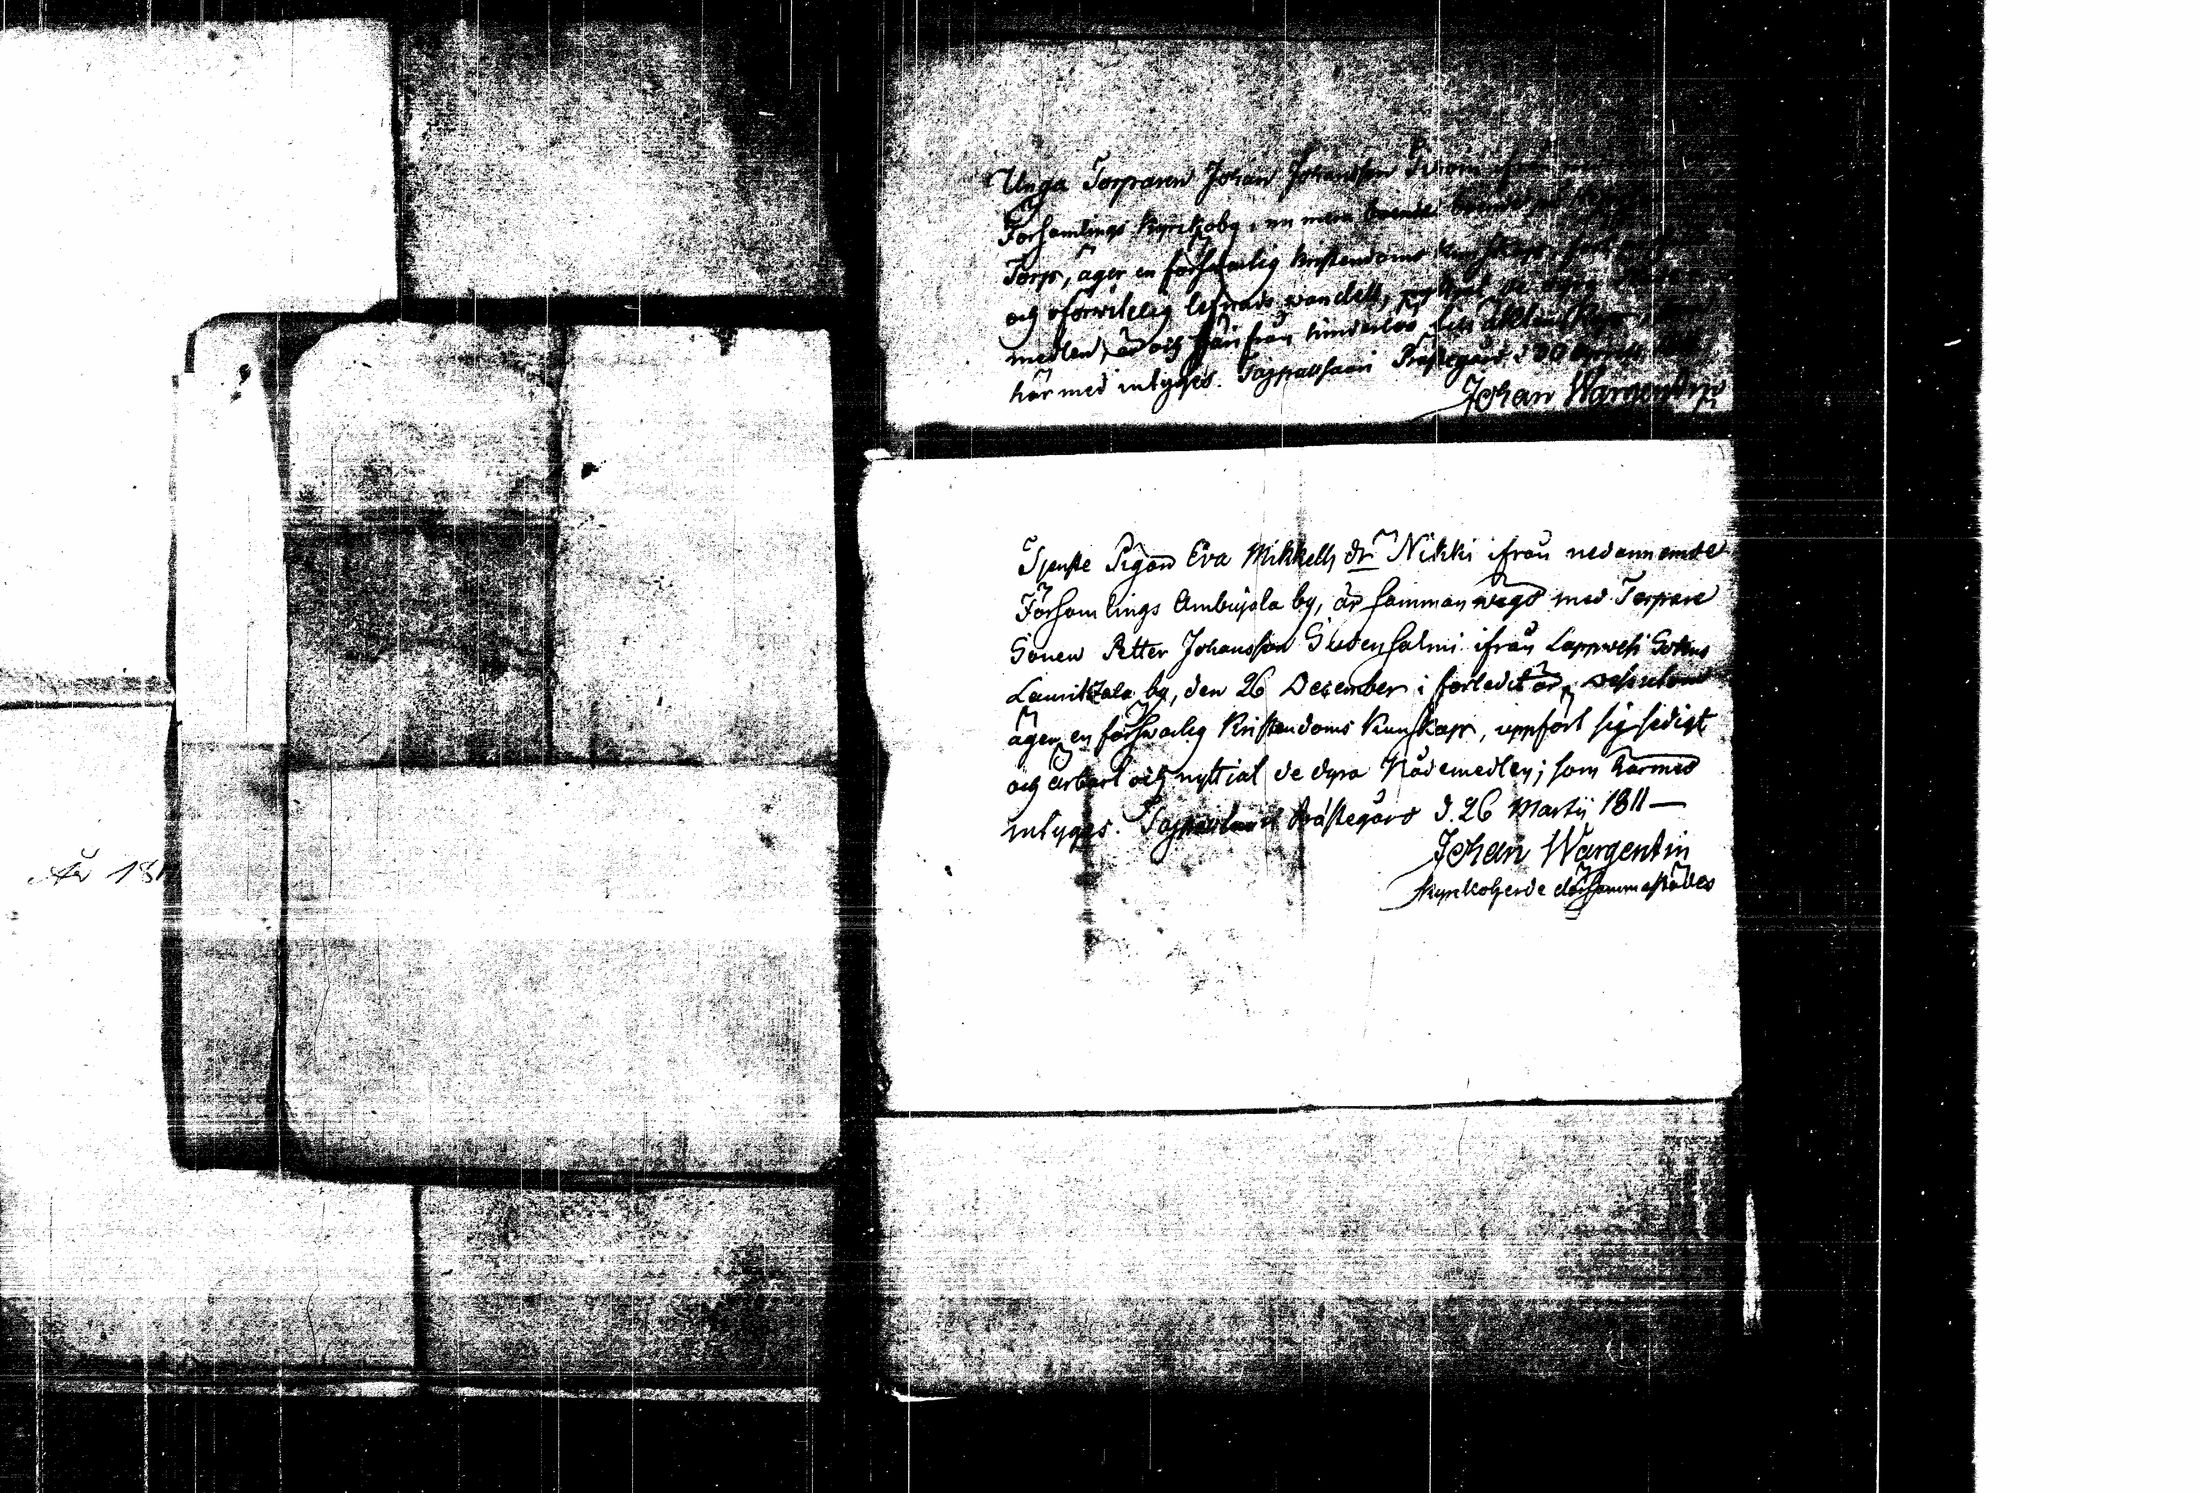 Unga Torparen Johan Johansson
Församlings Kyrckoby, nu mera boende
Torp, äger en förswarlig kristendoms kunskap
och oförwitelig lefnads wandell, de dyra
medlen, är och härifrån hinderlös
här med intygas. Taipalsaari Prästegård d. 30
Johan Wargentin
Tjenste Pigan Eva Mikkels dr Nikki ifrån nedannemde
Församlings Ambujala by, är sammanwigd med Torpare
Sonen Petter Johansson Sudensalmi ifrån Lappwesi Sokns
Lauritzala by, den 26 December i förledit år,
äger en förswarlig Kristendoms Kunskap, uppfört sig sedigt
och ärbart och nyttiat de dyra Nådemedlen; som härmed
intygas. Taipalsaari Prästegård d. 26 Martii 1811 —
Johan Wargentin
Kyrckoherde därsammastädes
År 181